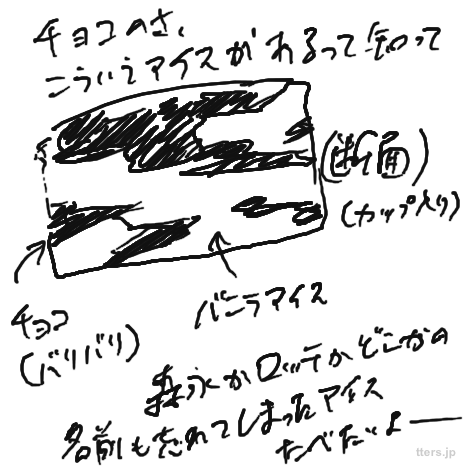 チョコのさ、
こういうアイスがあるって知って
(断面)
(カップ入り)
バニラアイス
チョコ
(バリバリ)
森永かロッテかどこかの
名前も忘れてしまったアイス
たべたいよー
tters.jp